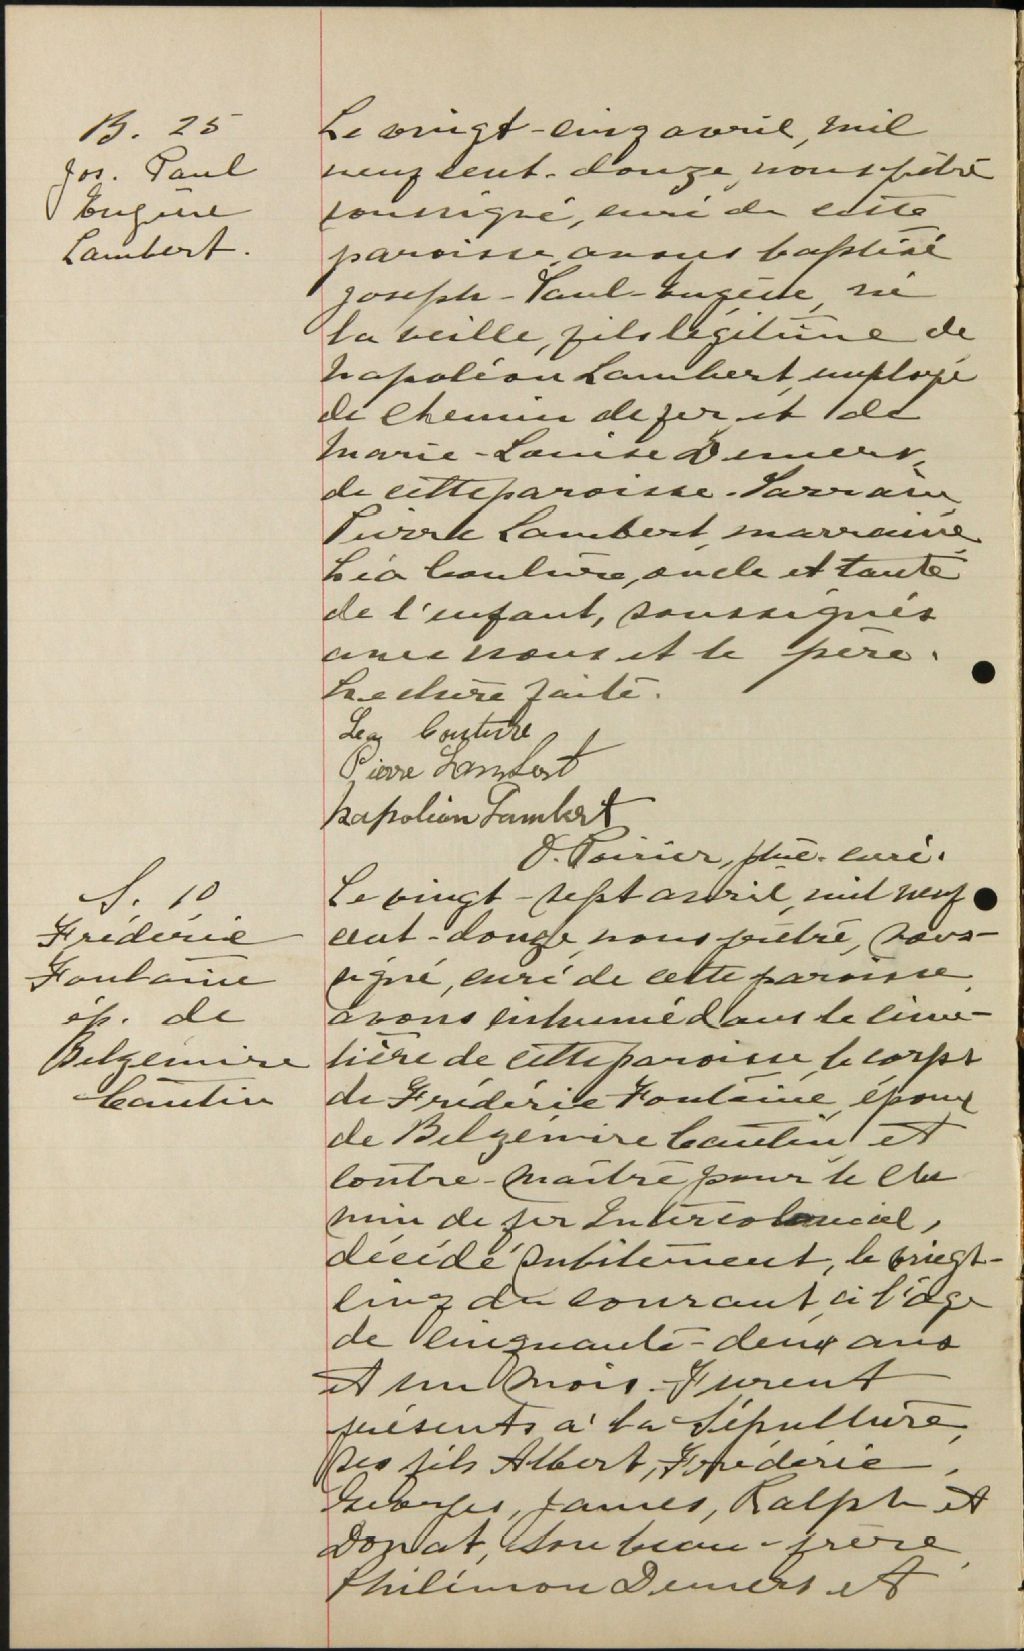 B. 25
Jos. Paul
Eugène
Lambert.
Le vingt-cinq avril, mil
neuf cent-douze, nous prêtre
soussigné, curé de cette
paroisse, avons baptisé
Joseph-Paul-Eugène, né
la veille, fils légitime de
Napoléon Lambert, employé
de chemin de fer, et de
Marie-Louise Demers,
de cette paroisse. Parrain,
Pierre Lambert, marraine,
Léa Couture, oncle et tante
de l'enfant, soussignés
avec nous et le père.
Lecture faite.
Lea Couture
Pierre Lambert
Napoléon Lambert
O. Poirier, ptre. curé.
S. 10
Frédéric
Fontaine
ép. de
Belzémire
Cantin
Le vingt-sept avril, mil neuf
cent-douze, nous prêtre, sous-
signé, curé de cette paroisse,
avons inhumé dans le cime-
tière de cette paroisse, le corps
de Frédéric Fontaine, époux
de Belzémire Cantin, et
contre-maître pour le che
min de fer Intercolonial,
décédé subitement, le vingt-
cinq du courant, à l'âge
de cinquante-deux ans
et un mois. Furent
présents à la sépulture,
ses fils Albert, Frédéric,
Georges, James, Ralph et
Donat, son beau-frère,
Philémon Demers et